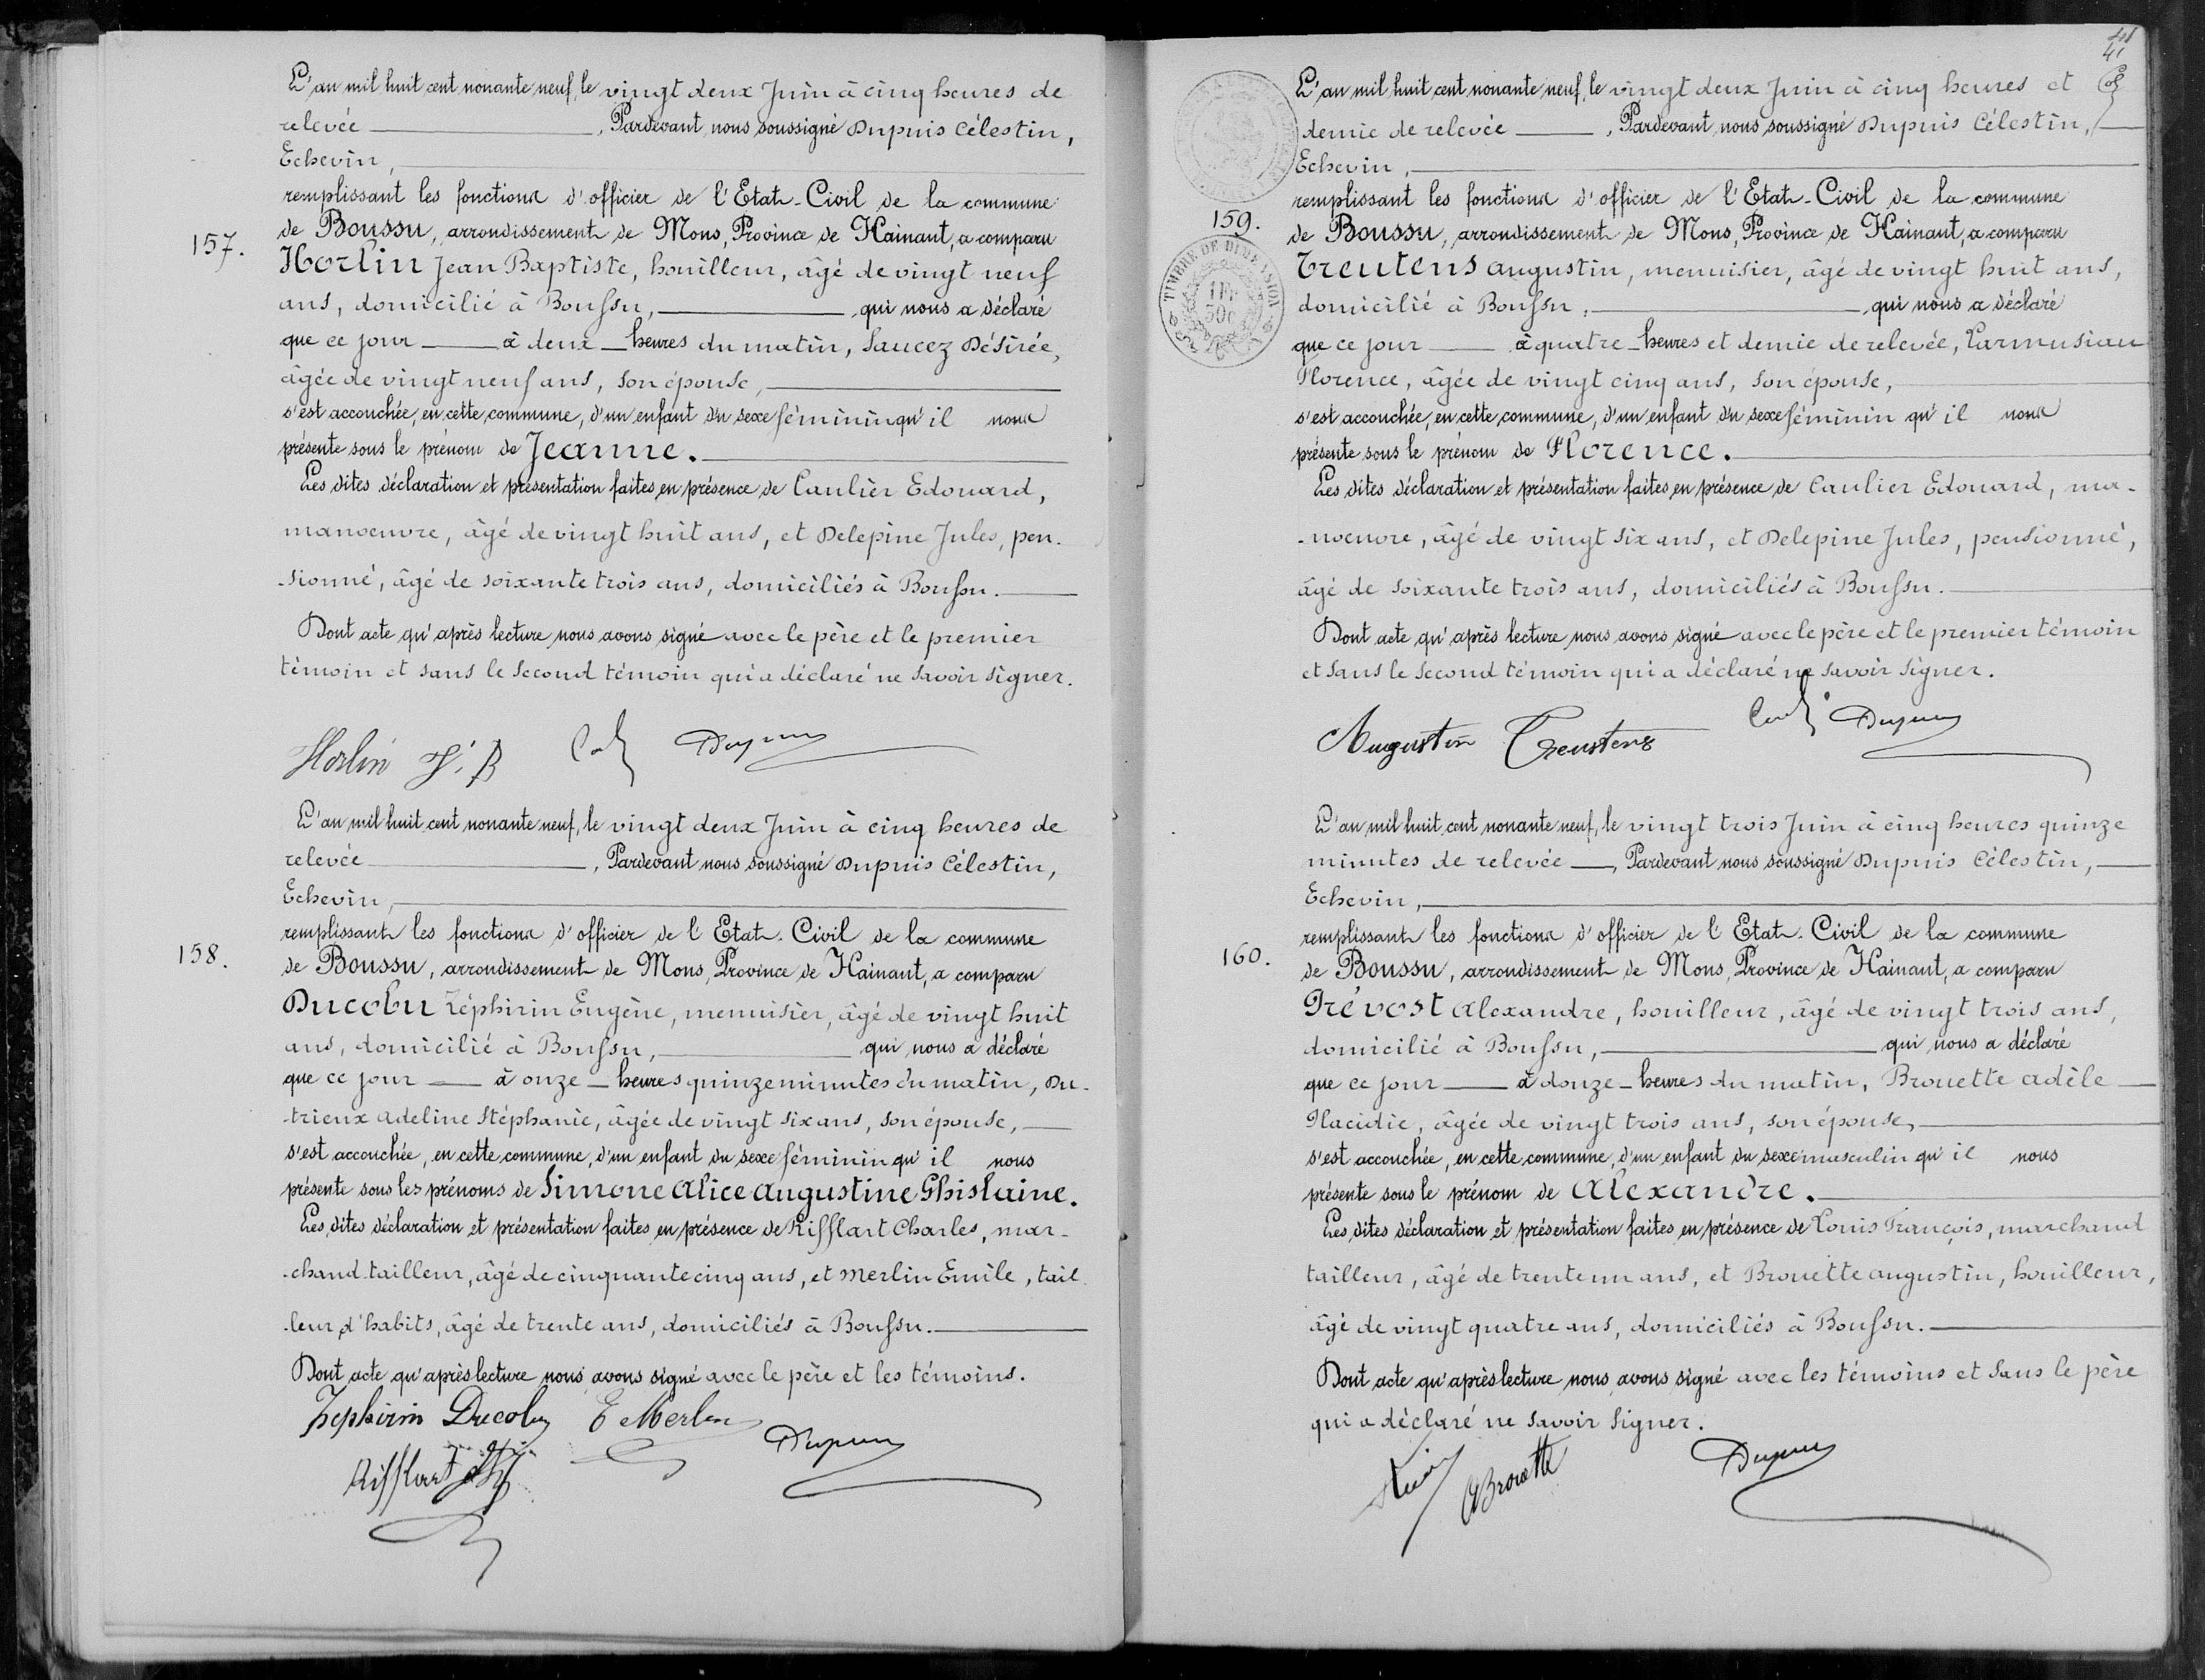 L'an mil huit cent nonante neuf, le vingt deux Juin à cinq heures de
relevée, Pardevant nous soussigné Dupuis Célestin,
Echevin,
remplissant les fonctions d'officier de l'Etat-Civil de la commune
157.
de Boussu, arrondissement de Mons, Province de Hainaut, a comparu
Horlin Jean Baptiste, houilleur, âgé de vingt neuf
ans, domicilié à Boussu, qui nous a déclaré
que ce jour à deux heures du matin, Saucez Désirée,
âgée de vingt neuf ans, son épouse,
s'est accouchée, en cette commune, d'un enfant du sexe féminin qu'il nous
présente sous le prénom de Jeanne.
Les dites déclaration et présentation faites en présence de Caulier Edouard,
manoeuvre, âgé de vingt huit ans, et Delepine Jules, pen-
-sionné, âgé de soixante trois ans, domiciliés à Boussu.
Dont acte qu'après lecture nous avons signé avec le père et le premier
témoin et sans le second témoin qui a déclaré ne savoir signer.
Horlin J. B Dupuis
L'an mil huit cent nonante neuf, le vingt deux Juin à cinq heures de
relevée, Pardevant nous soussigné Dupuis Célestin,
Echevin,
remplissant les fonctions d'officier de l'Etat-Civil de la commune
158.
de Boussu, arrondissement de Mons, Province de Hainaut, a comparu
Ducobu Zéphirin Eugène, menuisier, âgé de vingt huit
ans, domicilié à Boussu, qui nous a déclaré
que ce jour à onze heures quinze minutes du matin, Du-
-trieux Adeline Stéphanie, âgée de vingt six ans, son épouse,
s'est accouchée, en cette commune, d'un enfant du sexe féminin qu'il nous
présente sous les prénoms de Simone Alice Augustine Ghislaine.
Les dites déclaration et présentation faites en présence de Rifflart Charles, mar-
-chand tailleur, âgé de cinquante cinq ans, et Merlin Emile, tail-
-leur d'habits, âgé de trente ans, domiciliés à Boussu.
Dont acte qu'après lecture nous avons signé avec le père et les témoins.
Zephirin Ducobu E Merlin
Dupuis
Rifflart
41
L'an mil huit cent nonante neuf, le vingt deux Juin à cinq heures et
demie de relevée, Pardevant nous soussigné Dupuis Célestin,
Echevin,
remplissant les fonctions d'officier de l'Etat-Civil de la commune
159.
de Boussu, arrondissement de Mons, Province de Hainaut, a comparu
TIMBRE DE DIMENSION
1 Fr
50c
Treutens Augustin, menuisier, âgé de vingt huit ans,
domicilié à Boussu, qui nous a déclaré
que ce jour à quatre heures et demie de relevée, Carmusiau
Florence, âgée de vingt cinq ans, son épouse,
s'est accouchée, en cette commune, d'un enfant du sexe féminin qu'il nous
présente sous le prénom de Florence.
Les dites déclaration et présentation faites en présence de Caulier Edouard, ma-
-noeuvre, âgé de vingt six ans, et Delepine Jules, pensionné,
âgé de soixante trois ans, domiciliés à Boussu.
Dont acte qu'après lecture nous avons signé avec le père et le premier témoin
et sans le second témoin qui a déclaré ne savoir signer.
Augustin Treustens Dupuis
L'an mil huit cent nonante neuf, le vingt trois Juin à cinq heures quinze
minutes de relevée, Pardevant nous soussigné Dupuis Célestin,
Echevin,
remplissant les fonctions d'officier de l'Etat-Civil de la commune
160.
de Boussu, arrondissement de Mons, Province de Hainaut, a comparu
Prévost Alexandre, houilleur, âgé de vingt trois ans,
domicilié à Boussu, qui nous a déclaré
que ce jour à douze heures du matin, Brouette Adèle
Placidie, âgée de vingt trois ans, son épouse,
s'est accouchée, en cette commune, d'un enfant du sexe masculin qu'il nous
présente sous le prénom de Alexandre.
Les dites déclaration et présentation faites en présence de Louis François, marchand
tailleur, âgé de trente un ans, et Brouette Augustin, houilleur,
âgé de vingt quatre ans, domiciliés à Boussu.
Dont acte qu'après lecture nous avons signé avec les témoins et sans le père
qui a déclaré ne savoir signer.
ABrouette Dupuis